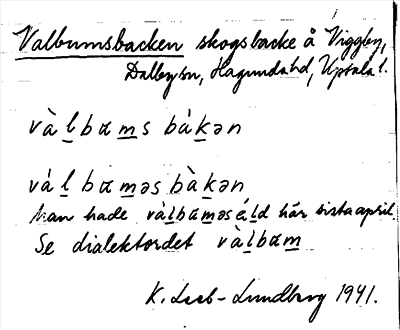 Valbumsbacken skogsbacke å Viggby,
Dalby sn, Hagunda hd, Uppsala l.
và l̲ b ɑ m̲ s bák̲ən
vá l̲ b ɑ m̲əs bàk̲ən
Man hade vàl̲bɑm̲əsél̲d här sista april.
Se dialektordet vàl̲bɑm̲
K. Lieb-Lundberg 1941.